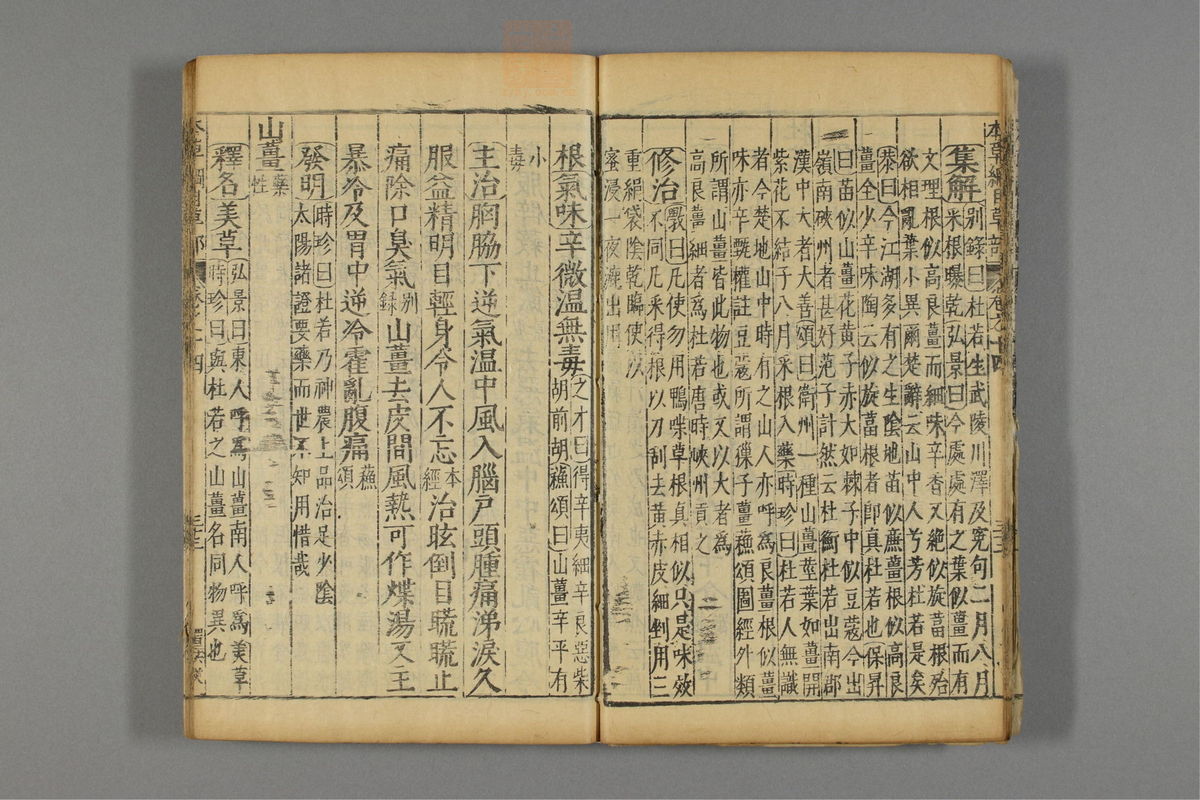 本草綱目草部 卷之十四
集解 別錄曰杜若生武陵川澤及冤句二月八月
采根曝乾弘景曰今處處有之葉似薑而有
文理根似高良薑而細味辛香又絶似旋葍根殆
欲相亂葉小異爾楚辭云山中人兮芳杜若是矣
恭曰今江湖多有之生陰地苗似廉薑根似高良
薑全少辛味陶云似旋葍根者即真杜若也保昇
曰苗似山薑花黃子赤大如棘子中似豆蔻今出
嶺南硤州者甚好范子計然云杜衡杜若出南郡
漢中大者大善頌曰衛州一種山薑莖葉如薑開
紫花不結子八月采根入藥時珍曰杜若人無識
者今楚地山中時有之山人亦呼爲良薑根似薑
味亦辛甄權註豆蔻所謂獽子薑蘇頌圖經外類
所謂山薑皆此物也或又以大者爲
高良薑細者爲杜若唐時峽州貢之
修治 斅曰凡使勿用鴨喋草根真相似只是味效
不同凡采得根以刀刮去黃赤皮細剉用三
重絹袋陰乾臨使以
蜜浸一夜漉出用
根氣味 辛微温無毒 之才曰得辛夷細辛良惡柴
胡前胡蘇頌曰山薑辛平有
小
毒
主治 胸脇下逆氣温中風入腦戶頭腫痛涕淚久
服益精明目輕身令人不忘 本經 治眩倒目䀮䀮止
痛除口臭氣 別錄 山薑去皮間風熱可作煠湯又主
暴冷及胃中逆冷霍亂腹痛 蘇頌
發明 時珍曰杜若乃神農上品治足少陰
太陽諸證要藥而世不知用惜哉
山薑 藥性
釋名 美草 弘景曰東人呼爲山薑南人呼爲美草
時珍曰與杜若之山薑名同物異也
本草綱目草部 卷之十四 三十三